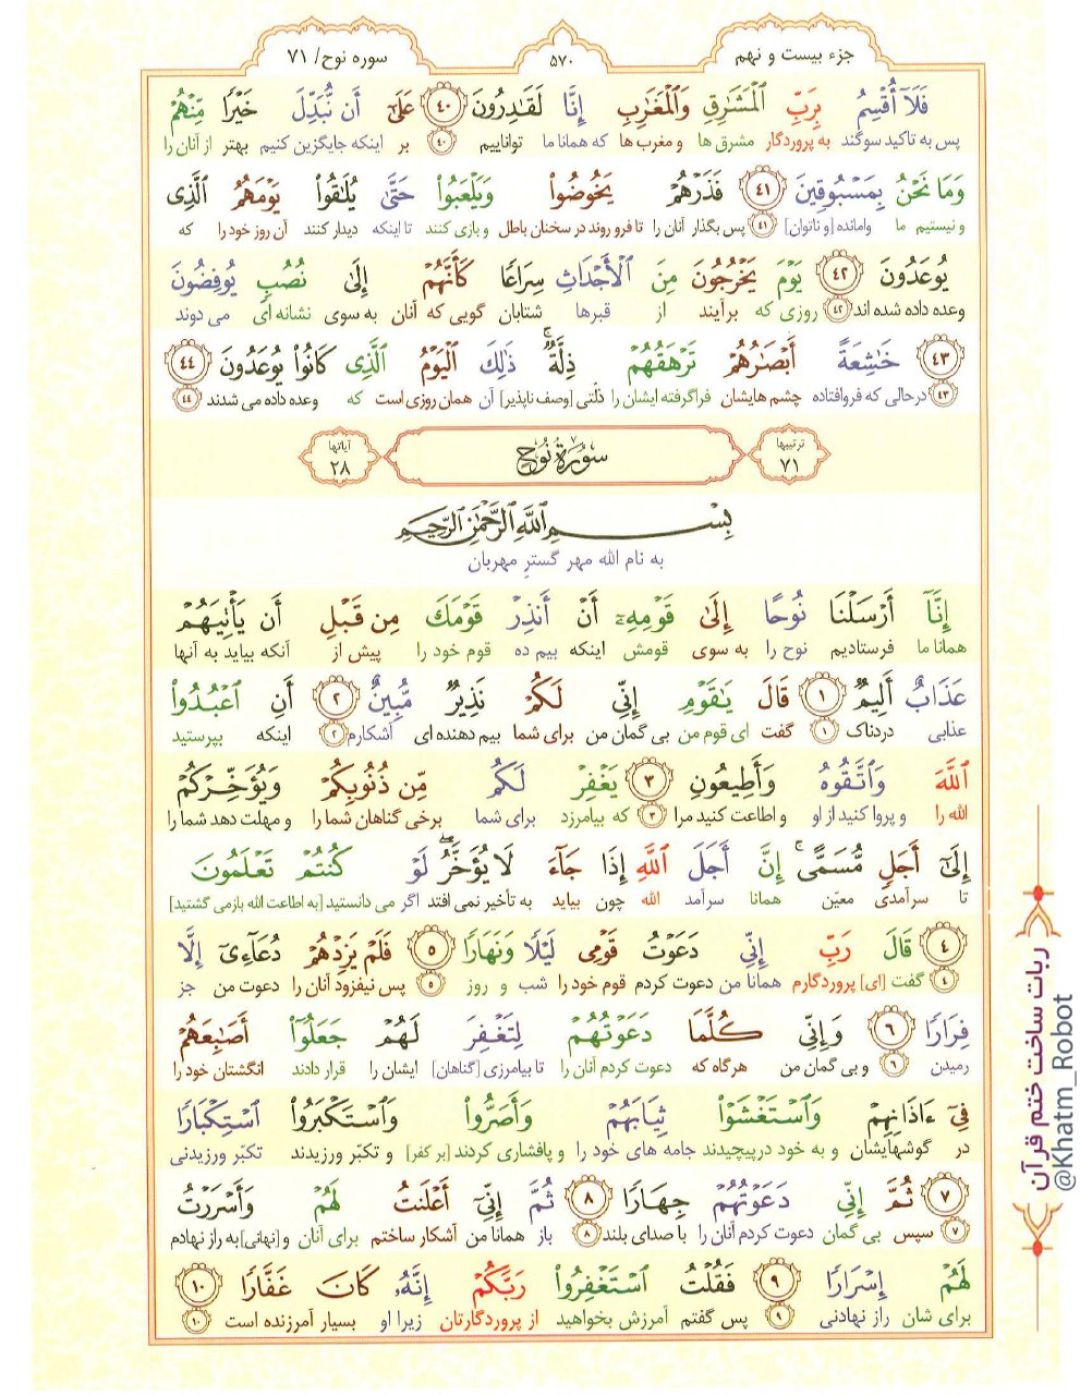 جزء بیست و نهم
۵۷۰
سوره نوح/ ۷۱
فَلَآ أُقۡسِمُ بِرَبِّ ٱلۡمَشَٰرِقِ وَٱلۡمَغَٰرِبِ إِنَّا لَقَٰدِرُونَ ٤٠ عَلَىٰٓ أَن نُّبَدِّلَ خَيۡرٗا مِّنۡهُمۡ
پس به تاکید سوگند به پروردگار مشرق ها و مغرب ها که همانا ما تواناییم ۴۰ بر اینکه جایگزین کنیم بهتر از آنان را
وَمَا نَحۡنُ بِمَسۡبُوقِينَ ٤١ فَذَرۡهُمۡ يَخُوضُواْ وَيَلۡعَبُواْ حَتَّىٰ يُلَٰقُواْ يَوۡمَهُمُ ٱلَّذِي
و نیستیم ما وامانده [و ناتوان] ۴۱ پس بگذار آنان را تا فرو روند در سخنان باطل و بازی کنند تا اینکه دیدار کنند آن روز خود را که
يُوعَدُونَ ٤٢ يَوۡمَ يَخۡرُجُونَ مِنَ ٱلۡأَجۡدَاثِ سِرَاعٗا كَأَنَّهُمۡ إِلَىٰ نُصُبٖ يُوفِضُونَ
وعده داده شده اند ۴۲ روزی که برآیند از قبرها شتابان گویی که آنان به سوی نشانه ای می دوند
٤٣ خَٰشِعَةً أَبۡصَٰرُهُمۡ تَرۡهَقُهُمۡ ذِلَّةٞۚ ذَٰلِكَ ٱلۡيَوۡمُ ٱلَّذِي كَانُواْ يُوعَدُونَ ٤٤
۴۳ درحالی که فروافتاده چشم هایشان فراگرفته ایشان را ذلّتی [وصف ناپذیر] آن همان روزی است که وعده داده می شدند ۴۴
ترتیبها ۷۱
سُورَةُ نُوحٍ
آیاتها ۲۸
بِسۡمِ ٱللَّهِ ٱلرَّحۡمَٰنِ ٱلرَّحِيمِ
به نام الله مهر گستر مهربان
إِنَّآ أَرۡسَلۡنَا نُوحًا إِلَىٰ قَوۡمِهِۦٓ أَنۡ أَنذِرۡ قَوۡمَكَ مِن قَبۡلِ أَن يَأۡتِيَهُمۡ
همانا ما فرستادیم نوح را به سوی قومش اینکه بیم ده قوم خود را پیش از آنکه بیاید به آنها
عَذَابٌ أَلِيمٞ ١ قَالَ يَٰقَوۡمِ إِنِّي لَكُمۡ نَذِيرٞ مُّبِينٌ ٢ أَنِ ٱعۡبُدُواْ
عذابی دردناک ۱ گفت ای قوم من بی گمان من برای شما بیم دهنده ای آشکارم ۲ اینکه بپرستید
ٱللَّهَ وَٱتَّقُوهُ وَأَطِيعُونِ ٣ يَغۡفِرۡ لَكُم مِّن ذُنُوبِكُمۡ وَيُؤَخِّرۡكُمۡ
الله را و پروا کنید از او و اطاعت کنید مرا ۳ که بیامرزد برای شما برخی گناهان شما را و مهلت دهد شما را
إِلَىٰٓ أَجَلٖ مُّسَمًّىۚ إِنَّ أَجَلَ ٱللَّهِ إِذَا جَآءَ لَا يُؤَخَّرُۖ لَوۡ كُنتُمۡ تَعۡلَمُونَ
تا سرآمدی معیّن همانا سرآمد الله چون بیاید به تأخیر نمی افتد اگر می دانستید [به اطاعت الله بازمی گشتید]
٤ قَالَ رَبِّ إِنِّي دَعَوۡتُ قَوۡمِي لَيۡلٗا وَنَهَارٗا ٥ فَلَمۡ يَزِدۡهُمۡ دُعَآءِيٓ إِلَّا
۴ گفت [ای] پروردگارم همانا من دعوت کردم قوم خود را شب و روز ۵ پس نیفزود آنان را دعوت من جز
فِرَارٗا ٦ وَإِنِّي كُلَّمَا دَعَوۡتُهُمۡ لِتَغۡفِرَ لَهُمۡ جَعَلُوٓاْ أَصَٰبِعَهُمۡ
رمیدن ۶ و بی گمان من هرگاه که دعوت کردم آنان را تا بیامرزی [گناهان] ایشان را قرار دادند انگشتان خود را
فِيٓ ءَاذَانِهِمۡ وَٱسۡتَغۡشَوۡاْ ثِيَابَهُمۡ وَأَصَرُّواْ وَٱسۡتَكۡبَرُواْ ٱسۡتِكۡبَارٗا
در گوشهایشان و به خود درپیچیدند جامه های خود را و پافشاری کردند [بر کفر] و تکبّر ورزیدند تکبّر ورزیدنی
٧ ثُمَّ إِنِّي دَعَوۡتُهُمۡ جِهَارٗا ٨ ثُمَّ إِنِّيٓ أَعۡلَنتُ لَهُمۡ وَأَسۡرَرۡتُ
۷ سپس بی گمان دعوت کردم آنان را با صدای بلند ۸ باز همانا من آشکار ساختم برای آنان و [نهانی] به راز نهادم
لَهُمۡ إِسۡرَارٗا ٩ فَقُلۡتُ ٱسۡتَغۡفِرُواْ رَبَّكُمۡ إِنَّهُۥ كَانَ غَفَّارٗا ١٠
برای شان راز نهادنی ۹ پس گفتم آمرزش بخواهید از پروردگارتان زیرا او بسیار آمرزنده است ۱۰
ربات ساخت ختم قرآن
@Khatm_Robot